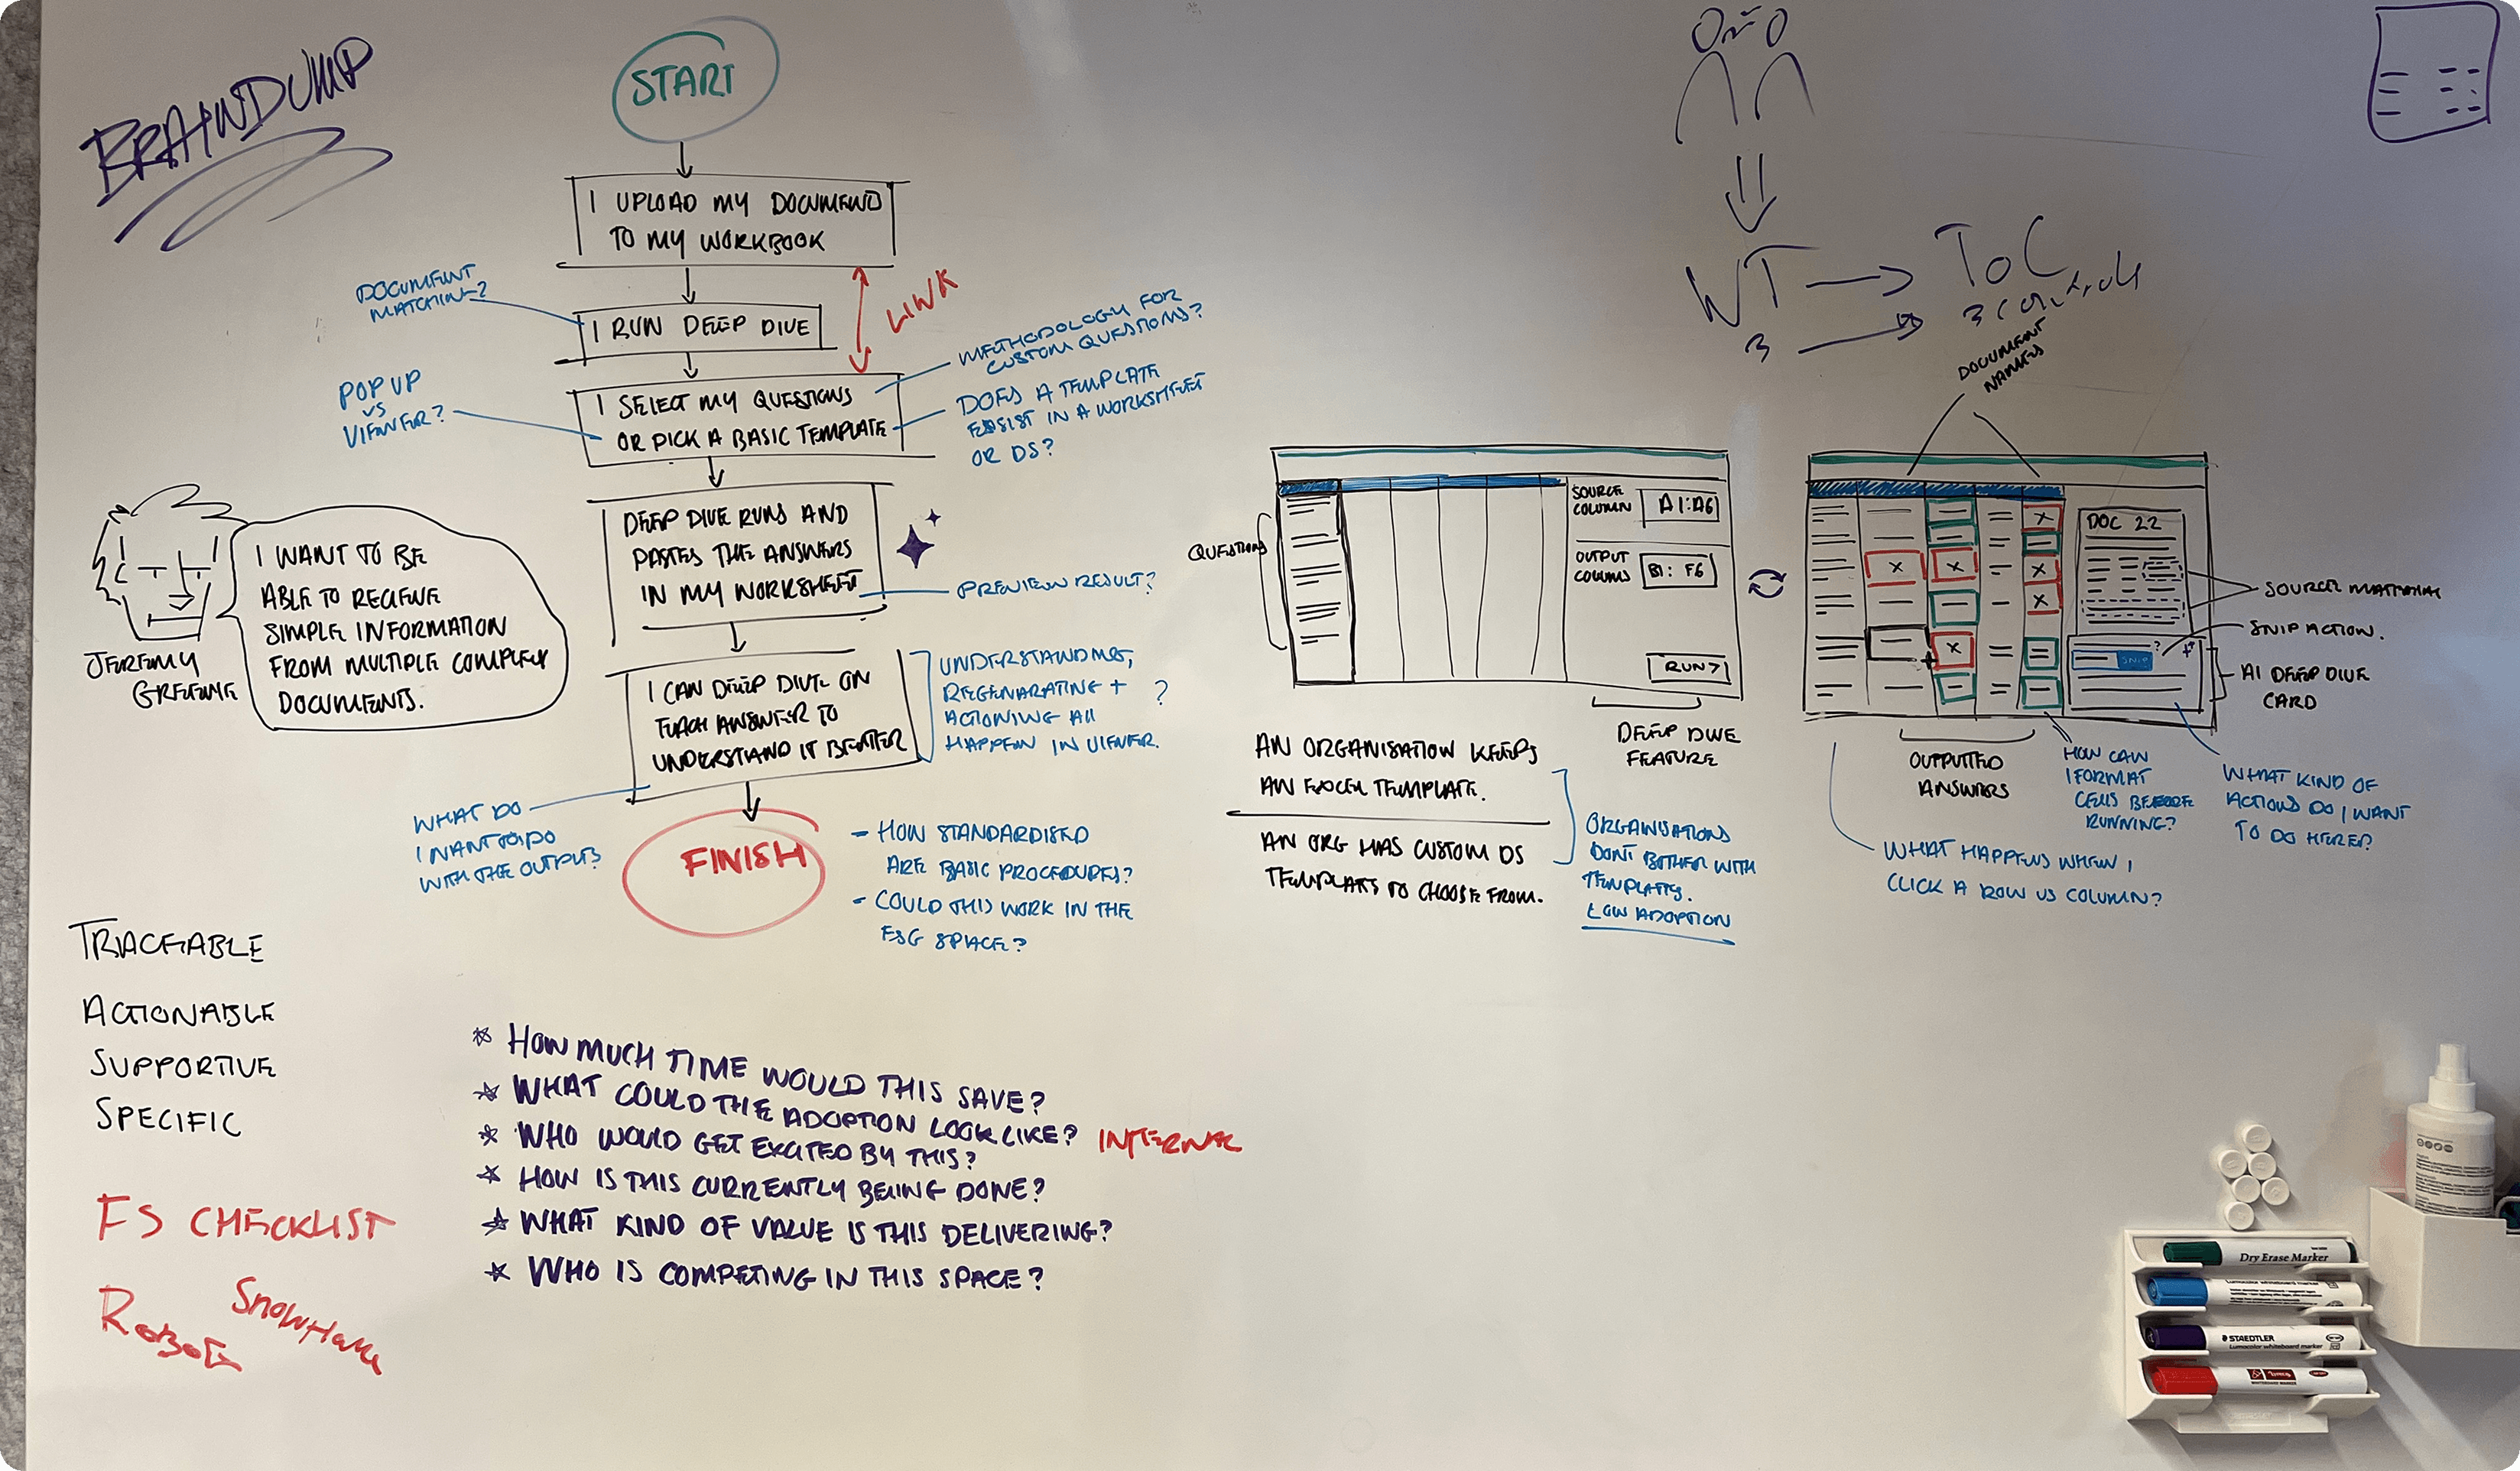 BRAINDUMP
START
I UPLOAD MY DOCUMENT
TO MY WORKBOOK
DOCUMENT
MATCHING?
I RUN DEEP DIVE
LINK
POP UP
VS
VIEWER?
I SELECT MY QUESTIONS
OR PICK A BASIC TEMPLATE
METHODOLOGY FOR
CUSTOM QUESTIONS?
DOES A TEMPLATE
EXSIST IN A WORKSHEET
OR DS?
DEEP DIVE RUNS AND
PASTES THE ANSWERS
IN MY WORKSHEET
PREVIEW RESULT?
I CAN DEEP DIVE ON
EACH ANSWER TO
UNDERSTAND IT BETTER
UNDERSTANDING,
REGENARATING +
ACTIONING All
HAPPEN IN VIEWER.
?
WHAT DO
I WANT TO DO
WITH THE OUTPUT?
FINISH
- HOW STANDARDISED
ARE BASIC PROCEDURES?
- COULD THIS WORK IN THE
ESG SPACE?
I WANT TO BE
ABLE TO RECIEVE
SIMPLE INFORMATION
FROM MULTIPLE COMPLEX
DOCUMENTS.
JEREMY
GREENE
TRACEABLE
ACTIONABLE
SUPPORTIVE
SPECIFIC
FS CHECKLIST
* HOW MUCH TIME WOULD THIS SAVE?
* WHAT COULD THE ADOPTION LOOK LIKE?
* WHO WOULD GET EXCITED BY THIS?
INTERNAL
* HOW IS THIS CURRENTLY BEING DONE?
* WHAT KIND OF VALUE IS THIS DELIVERING?
* WHO IS COMPETING IN THIS SPACE?
WT
ToC
3
3 controls
DOCUMENT
NAMES
QUESTIONS
SOURCE
COLUMN
A1:A6
OUTPUT
COLUMNS
B1: F6
RUN>
DEEP DIVE
FEATURE
AN ORGANISATION KEEPS
AN EXCEL TEMPLATE.
AN ORG HAS CUSTOM DS
TEMPLATES TO CHOOSE FROM.
ORGANISATIONS
DONT BOTHER WITH
TEMPLATES.
LOW ADOPTION
DOC 22
?
SNIP
SOURCE MATERIAL
SNIP ACTION.
AI DEEP DIVE
CARD
OUTPUTTED
ANSWERS
HOW CAN
I FORMAT
CELLS BEFORE
RUNNING?
WHAT KIND OF
ACTIONS DO I WANT
TO DO HERE?
WHAT HAPPENS WHEN I
CLICK A ROW VS COLUMN?
Dry Erase Marker
Lumocolor whiteboard marker
STAEDTLER
Lumocolor whiteboard marker